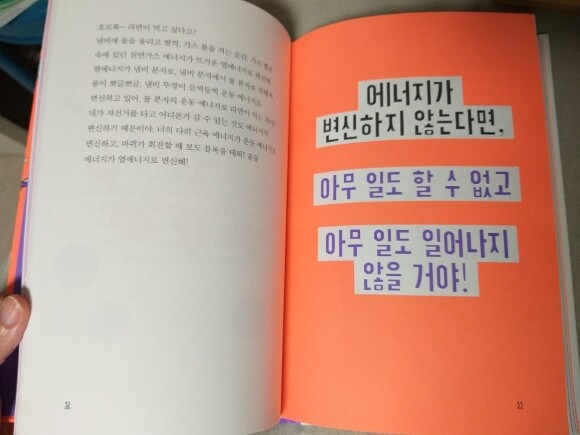 호로록~ 라면이 먹고 싶다고?
냄비에 물을 올리고 딸깍, 가스 불을 켜는 순간, 가스 병
속에 있던 천연가스 에너지가 뜨거운 열에너지로 변신해.
열에너지가 냄비 분자로, 냄비 분자에서 물 분자로 전해져,
물이 뽀글뽀글, 냄비 뚜껑이 들썩들썩 운동 에너지로
변신하고 있어. 물 분자의 운동 에너지로 라면이 익는 거야!
네가 자전거를 타고 어디론가 갈 수 있는 것도 에너지가
변신하기 때문이야. 너의 다리 근육 에너지가 운동 에너지로
변신하고, 바퀴가 회전할 때 보도 블록을 데워! 운동
에너지가 열에너지로 변신해!
에너지가
변신하지 않는다면,
아무 일도 할 수 없고
아무 일도 일어나지
않을 거야!
32
33